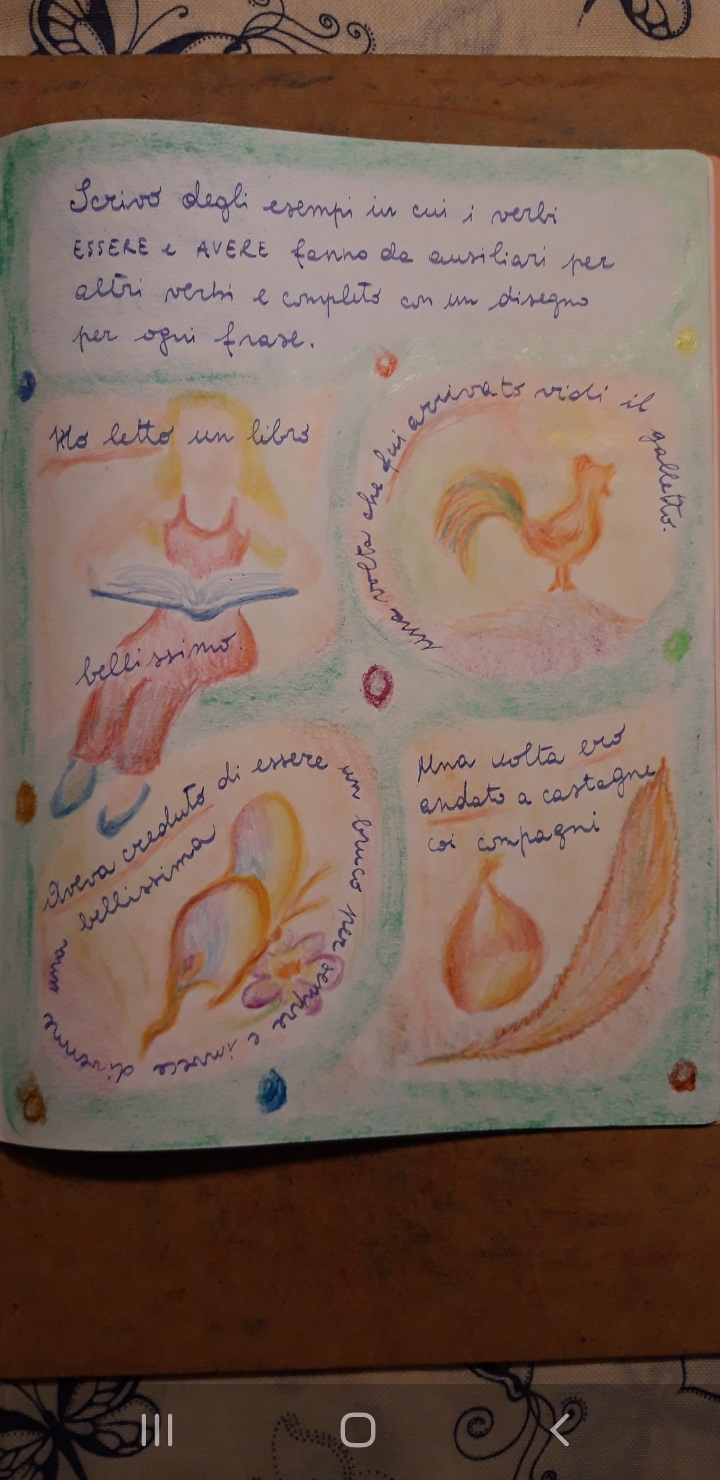 Scrivo degli esempi in cui i verbi
ESSERE e AVERE fanno da ausiliari per
altri verbi e completo con un disegno
per ogni frase.
Ho letto un libro
bellissimo.
una volta che fui arrivato vidi il galletto.
Aveva creduto di essere un bruco per sempre e invece divenne una
bellissima
Una volta ero
andato a castagne
coi compagni